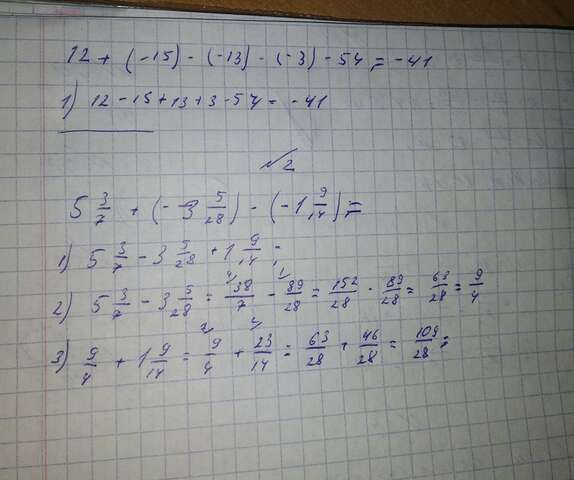 12 + (-15) - (-13) - (-3) - 54 = -41
1) 12 - 15 + 13 + 3 - 54 = -41
№2
5 3/7 + (- 3 5/28) - (-1 9/14) =
1) 5 3/7 - 3 5/28 + 1 9/14 ;
2) 5 3/7 - 3 5/28 = 38/7 - 89/28 = 152/28 - 89/28 = 63/28 = 9/4
3) 9/4 + 1 9/14 = 9/4 + 23/14 = 63/28 + 46/28 = 109/28 =